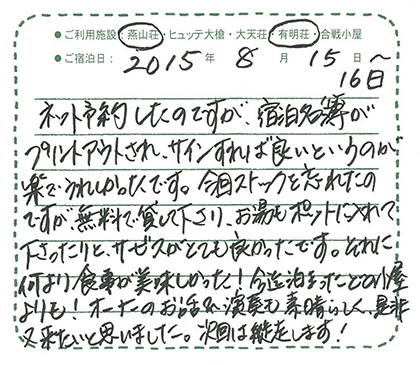 ●ご利用施設：燕山荘・ヒュッテ大槍・大天荘・有明荘・合戦小屋
●ご宿泊日：2015年8月15日～
16日
ネット予約したのですが、宿泊名簿が
プリントアウトされ、サインすれば良いというのが
楽でうれしかったです。今回ストックを忘れたの
ですが、無料で貸して下さり、お湯もポットに入れて
下さったりと、サービスがとても良かったです。それに
何より食事が美味しかった！今迄泊まったどの小屋
よりも！オーナーのお話や演奏も素晴らしく、是非
又来たいと思いました。次回は縦走します！